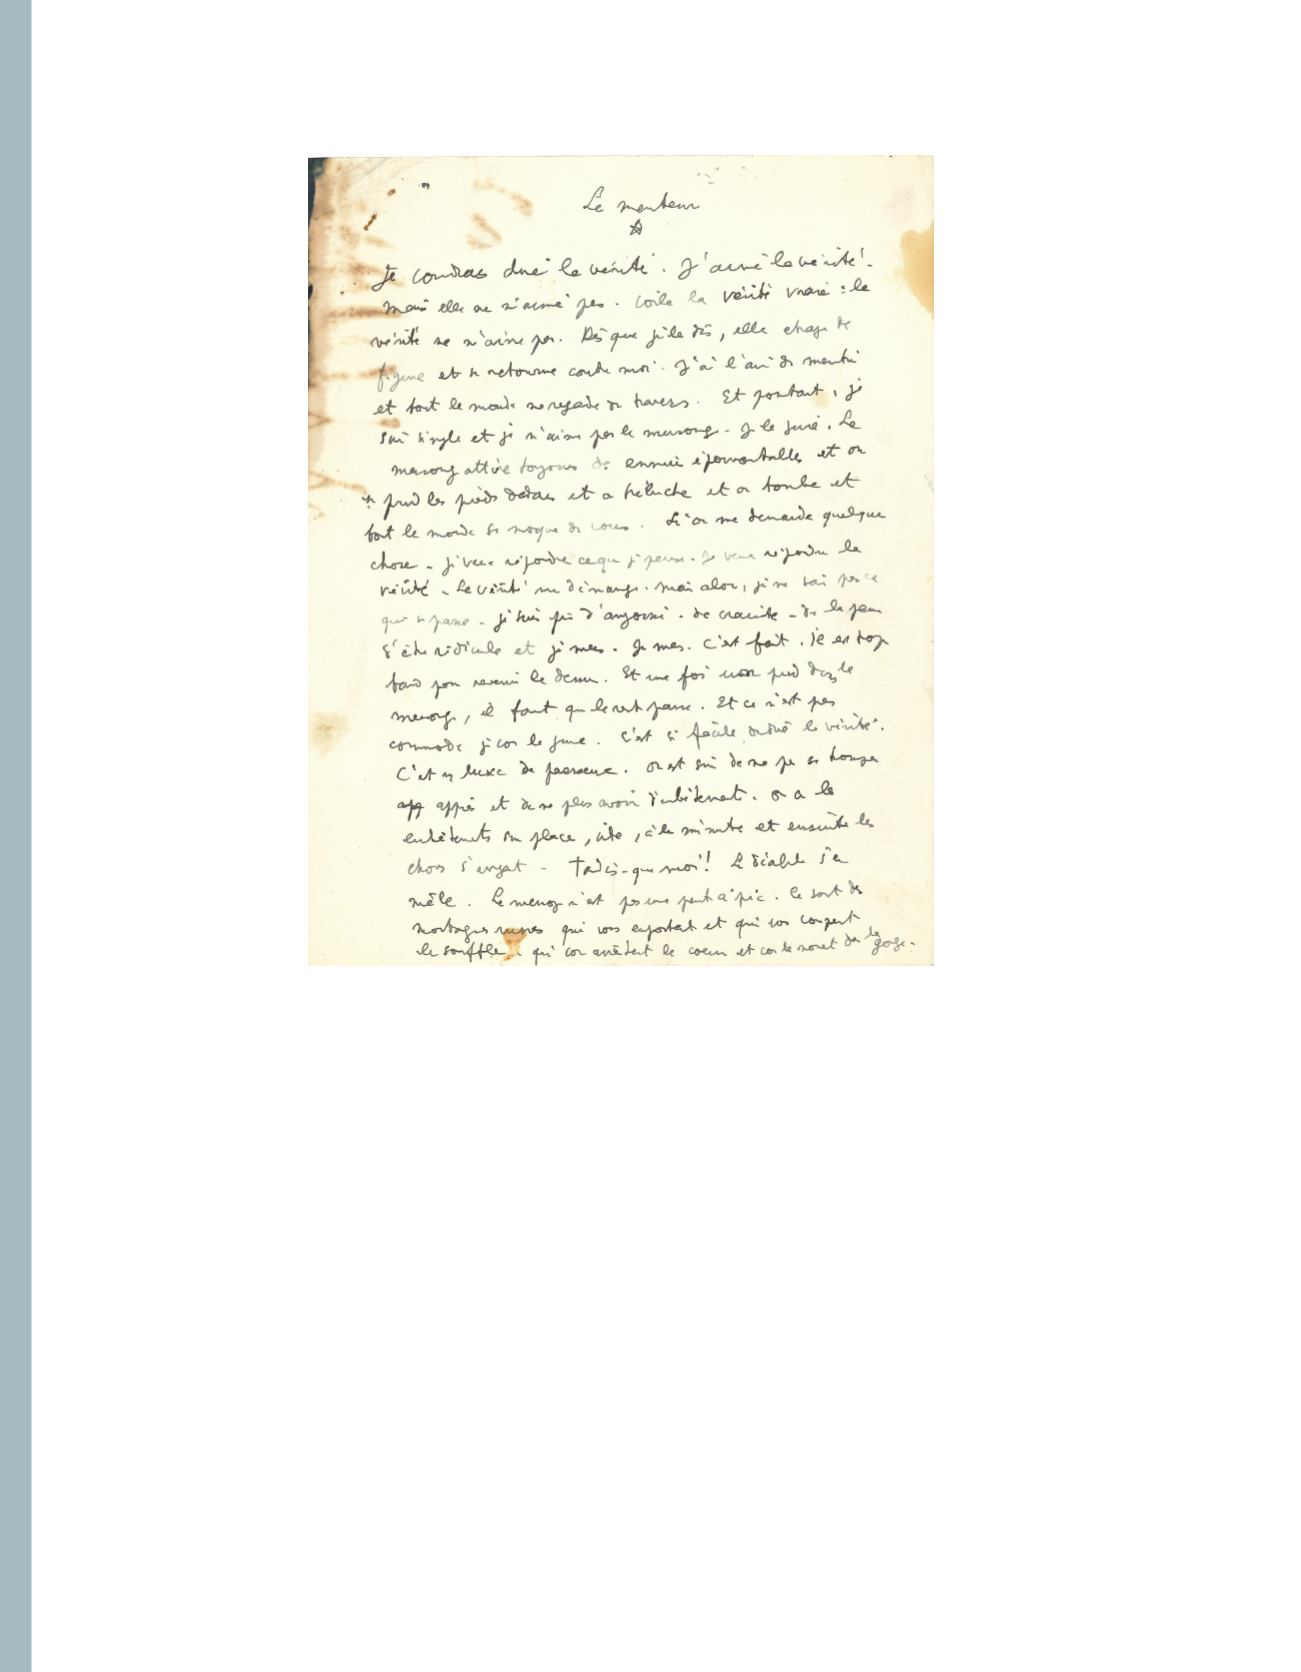 Le menteur
Je voudrais dire la vérité. J'aime la vérité.
Mais elle ne m'aime pas. Voilà la vérité vraie : la
vérité ne m'aime pas. Dès que je la dis, elle change de
figure et se retourne contre moi. J'ai l'air de mentir
et tout le monde me regarde de travers. Et pourtant, je
suis simple et je n'aime pas le mensonge. Je le jure. Le
mensonge attire toujours des ennuis épouvantables et on
se prend les pieds dedans et on trébuche et on tombe et
tout le monde se moque de vous. Si on me demande quelque
chose - je veux répondre ce que je pense. Je veux répondre la
vérité. La vérité me démange. Mais alors, je ne sais pas ce
qui se passe. je suis pris d'angoisse. de crainte - de la peur
d'être ridicule et je mens. Je mens. C'est fait. Il est trop
tard pour revenir là dessus. Et une fois un pied dans le
mensonge, il faut que le reste passe. Et ce n'est pas
commode je vous le jure. C'est si facile de dire la vérité.
C'est un luxe de paresseux. On est sûr de ne pas se tromper
après et de ne plus avoir d'embêtements. on a les
embêtements sur place, vite, à la minute et ensuite les
choses s'arrangent - Tandis que moi!! Le diable s'en
mêle. Le mensonge n'est pas une pente à pic. Ce sont des
montagnes russes qui vous emportent et qui vous coupent
le souffle, qui vous arrêtent le coeur et vous le nouent dans la gorge.